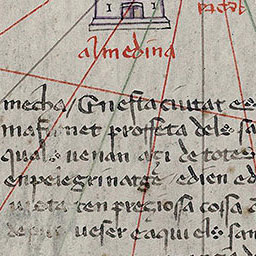 almedina
mecha / En esta ciutat es
mafumet proffeta dels sa
quals uenan açi de totes
en pelegrinatge / e dien
ten preciosa cossa
ueser e aquels sar